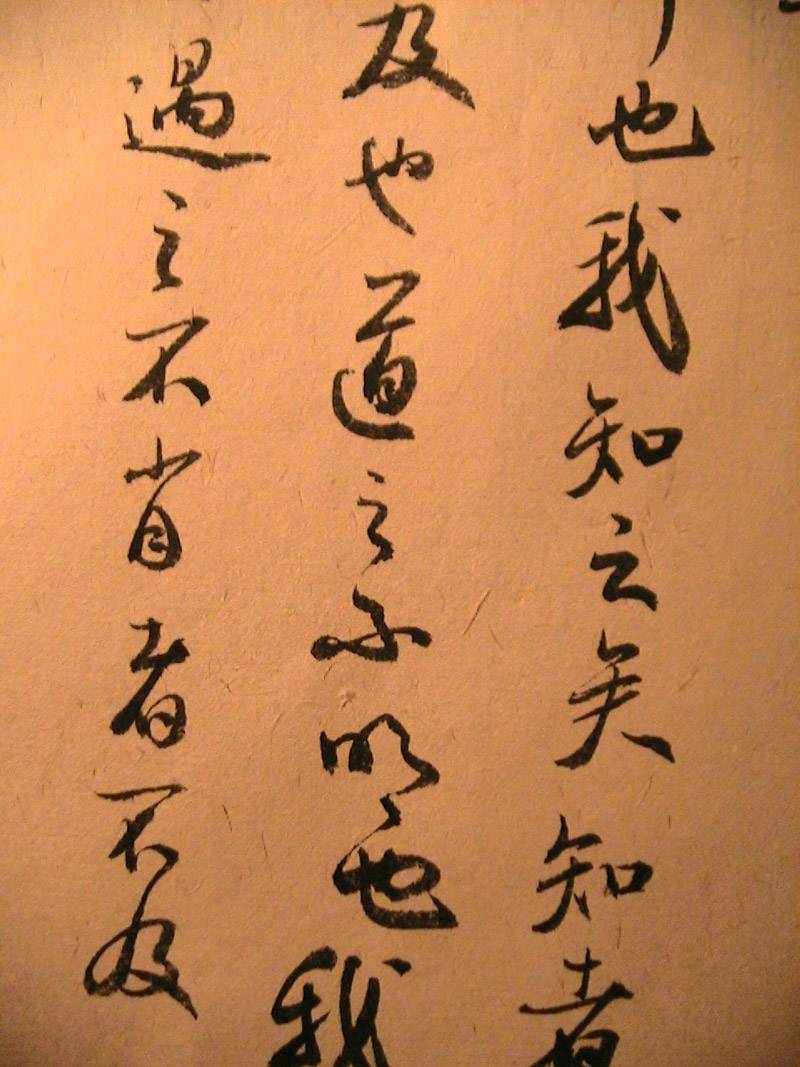 也我知之矣知者
及也道之不明也我
過之不肖者不及